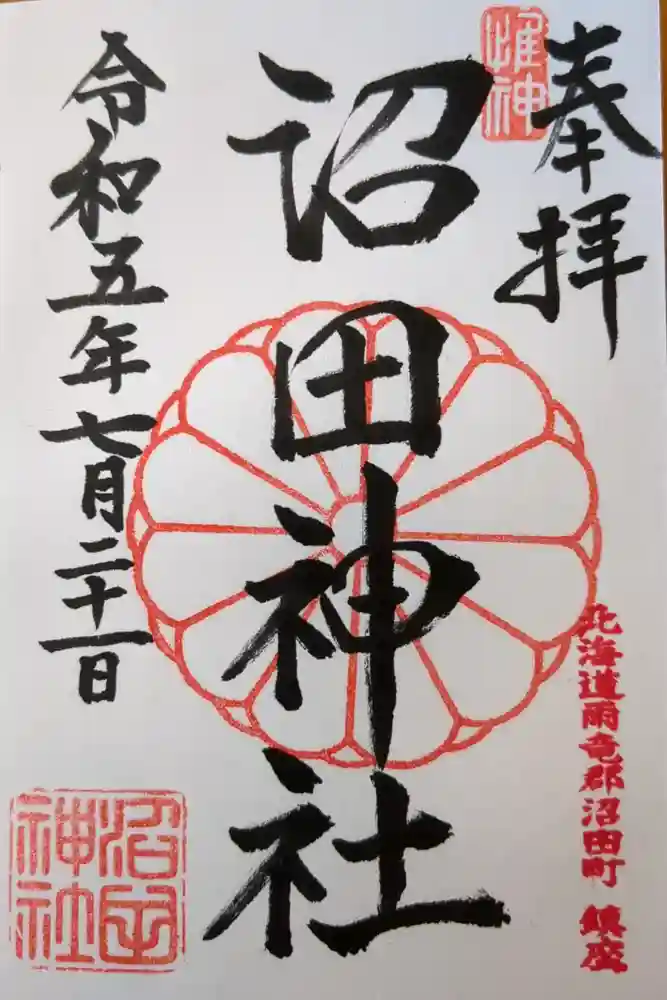 奉拝
惟神
沼田神社
北海道雨竜郡沼田町 鎮座
令和五年七月二十一日
沼田神社